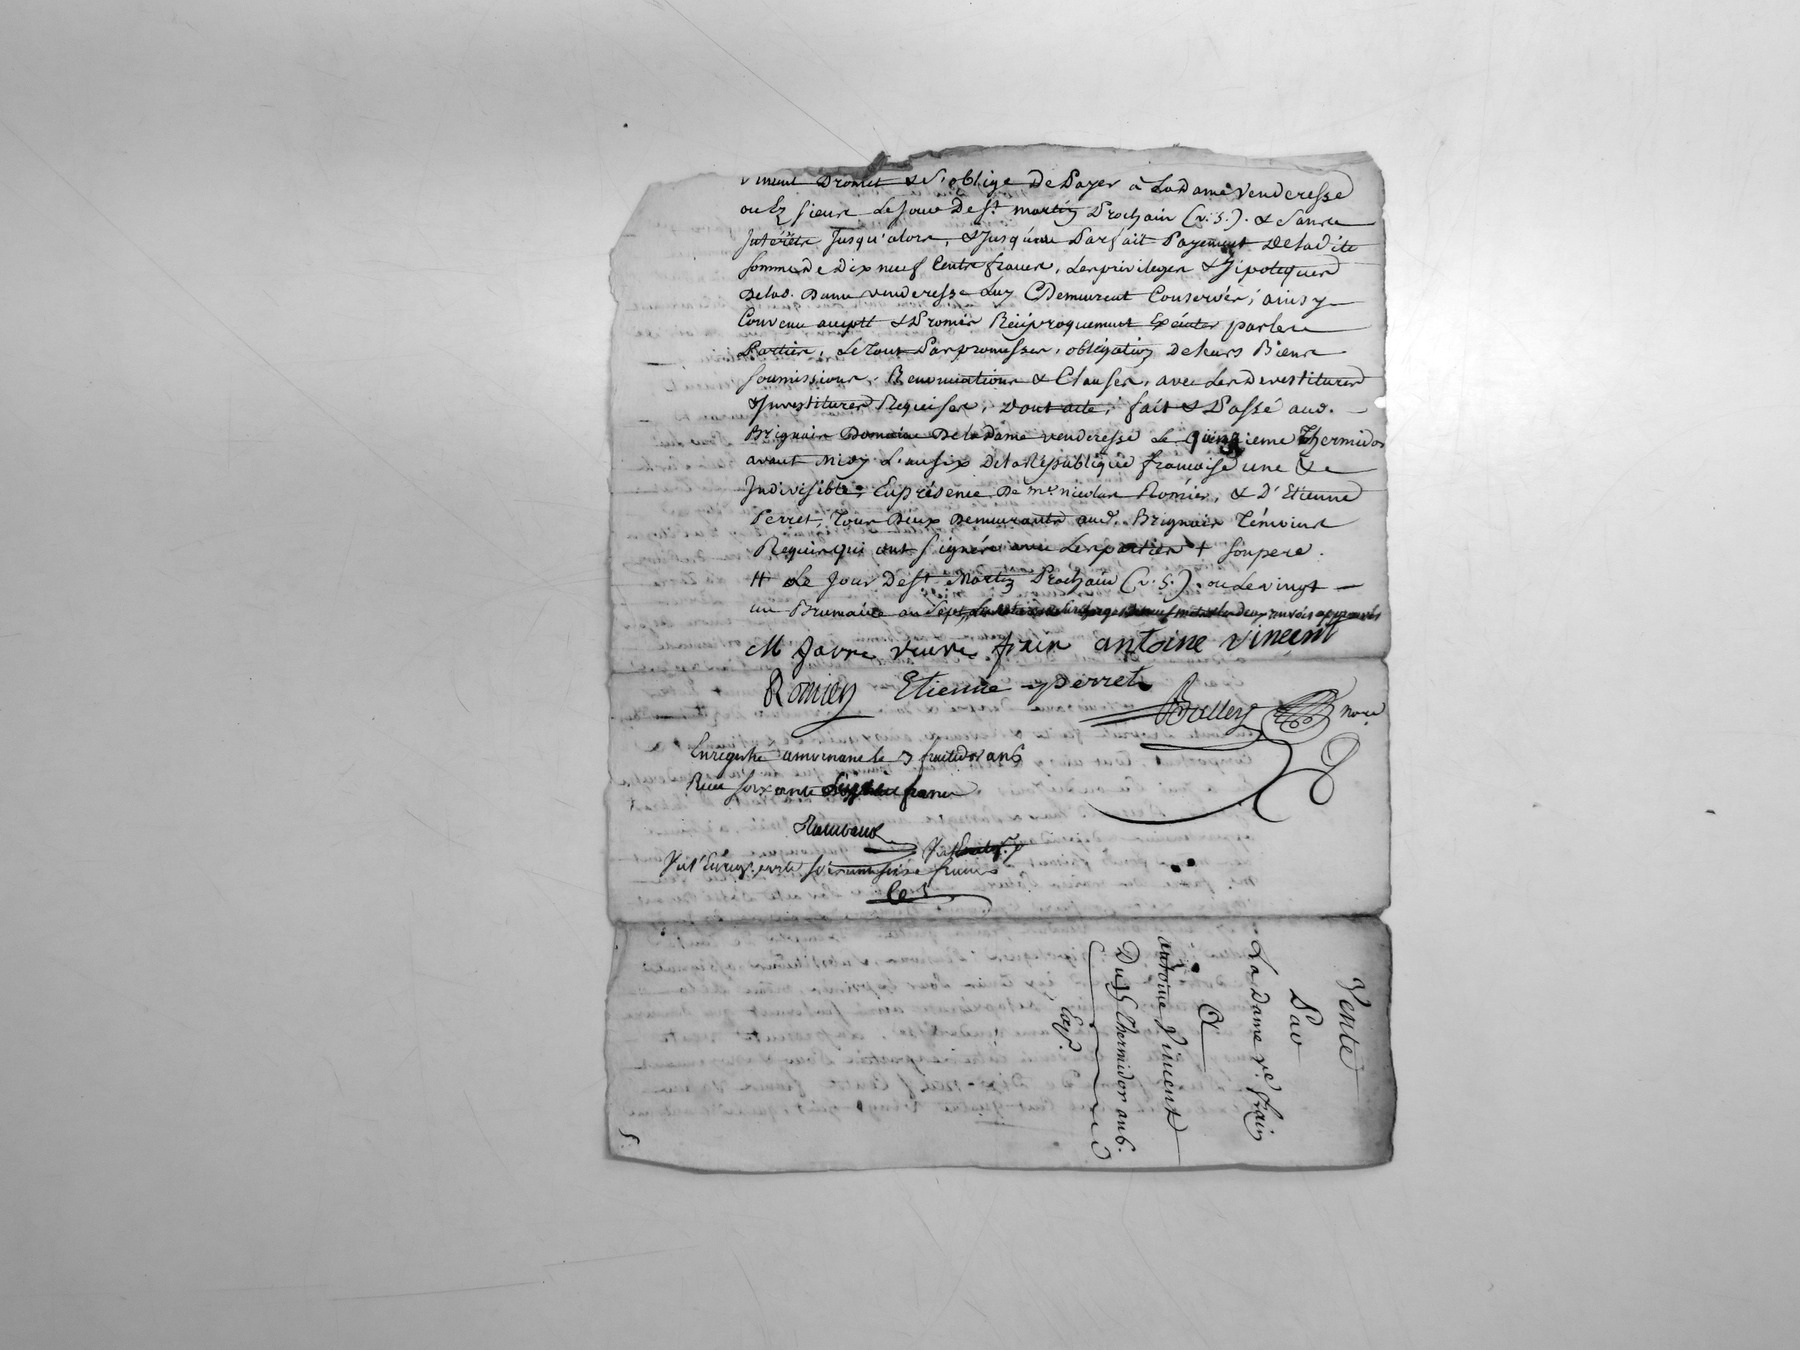 Promet & S'oblige De Payer à LaDame Venderesse
ou Ez Siens Le Jour De St. martin Prochain (v. s.). & Sans
Intérêts Jusqu'alors, & Jusqu'au Parfait Payement De ladite
Somme De Dix neuf Cents francs, Les privileges & Hipoteques
De lad. Dame venderesse Luy Demeurent Conservés; ainsy
Convenu accepté & Promis Réciproquement Exécuter par les
Parties, Le Tout Par promesses, obligation De Leurs Biens
Soumissions, Renonciations & Clauses, avec Les Devestitures
& Investitures Requises; Dont acte; fait & Passé aud.
Brignais Domaine De la Dame venderesse Le quinzieme Thermidor
avant Midy L'an six De la République francoise une &
Indivisible; En présence De mr. nicolas Romier, & D'Etienne
Perret, Tous Deux Demeurants aud. Brignais Témoins
Requis qui ont Signés avec Les parties + Son pere.
++ Le Jour De St. Martin Prochain (v. s.). ou Le vingt
un Brumaire an Sept, renvois approuvés
M Javre veuve frain antoine vincent
Romier Etienne perret
Nore
Enregistré le 7 fructidor an 6
Reçu soixante francs
Vente
Par
La Dame ve. frain
à
antoine Vincent
Du 15 Thermidor an 6.
Exp.